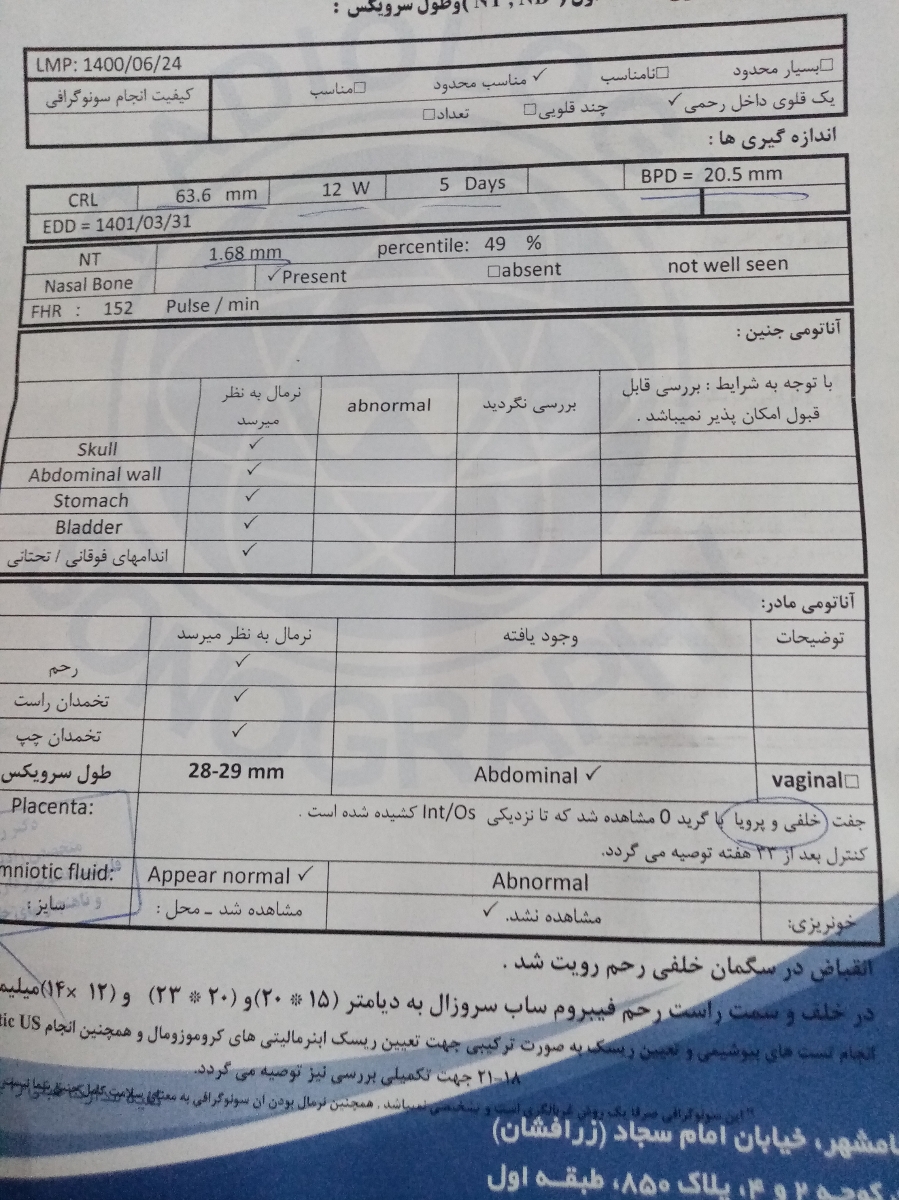 وطول سرویکس :
LMP: 1400/06/24
□بسیار محدود □نامناسب ✓ مناسب محدود □مناسب
کیفیت انجام سونوگرافی
یک قلوی داخل رحمی ✓ چند قلویی□ تعداد□
اندازه گیری ها :
CRL 63.6 mm 12 W 5 Days BPD = 20.5 mm
EDD = 1401/03/31
NT 1.68 mm percentile: 49 %
Nasal Bone ✓Present □absent not well seen
FHR : 152 Pulse / min
آناتومی جنین :
نرمال به نظر میرسد abnormal بررسی نگردید با توجه به شرایط : بررسی قابل
قبول امکان پذیر نمیباشد .
Skull ✓
Abdominal wall ✓
Stomach ✓
Bladder ✓
اندامهای فوقانی / تحتانی ✓
آناتومی مادر:
توضیحات وجود یافته نرمال به نظر میرسد
رحم ✓
تخمدان راست ✓
تخمدان چپ ✓
طول سرویکس 28-29 mm Abdominal ✓ vaginal□
Placenta: جفت خلفی و پرویا با گرید 0 مشاهده شد که تا نزدیکی Int/Os کشیده شده است .
کنترل بعد از ۲۳ هفته توصیه می گردد.
mniotic fluid: Appear normal ✓ Abnormal
خونریزی: مشاهده نشد. ✓ مشاهده شد ـ محل : سایز :
انقباض در سگمان خلفی رحم رویت شد .
در خلف و سمت راست رحم فیبروم ساب سروزال به دیامتر (۱۵ * ۲۰)و (۲۰ * ۲۳) و (۱۲ × ۱۴)میلیم
انجام تست های بیوشیمی و تعیین ریسک به صورت ترکیبی جهت تعیین ریسک ابنرمالیتی های کروموزومال و همچنین انجام tic US
۱۸-۲۱ جهت تکمیلی بررسی نیز توصیه می گردد.
" این سونوگرافی صرفا یک روش غربالگری است و تشخیصی نمیباشد . همچنین نرمال بودن ان سونوگرافی به معنای سلامت کامل جنین
امشهر، خیابان امام سجاد (زرافشان)
کوچه ۲ و ۴، پلاک ۸۵۰، طبقه اول